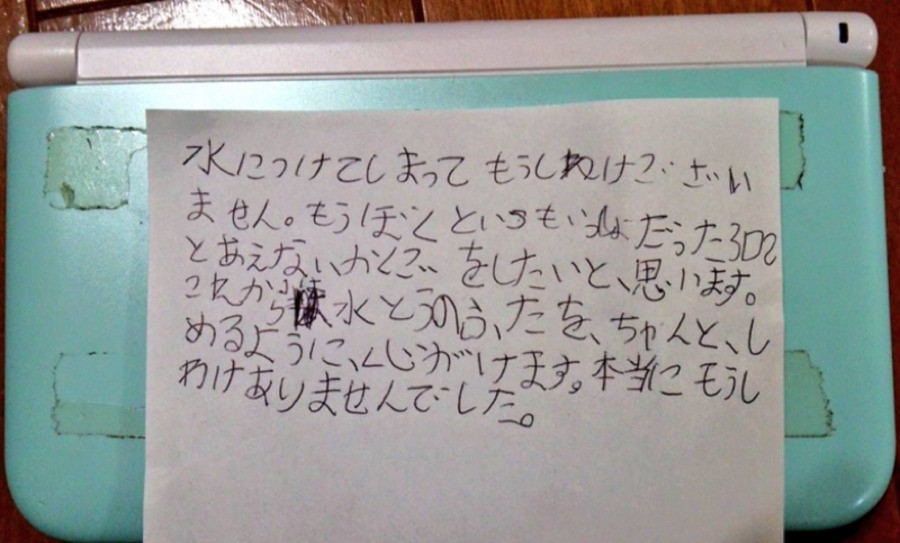 水につけてしまって もうしわけございい
ません。もうぼくといつもいっしょだった3DS
とあえないかくごをしたいと、思います。
これから水とうのふたを、ちゃんと、し
めるように、くじがけます。本当にもうし
わけありませんでした。